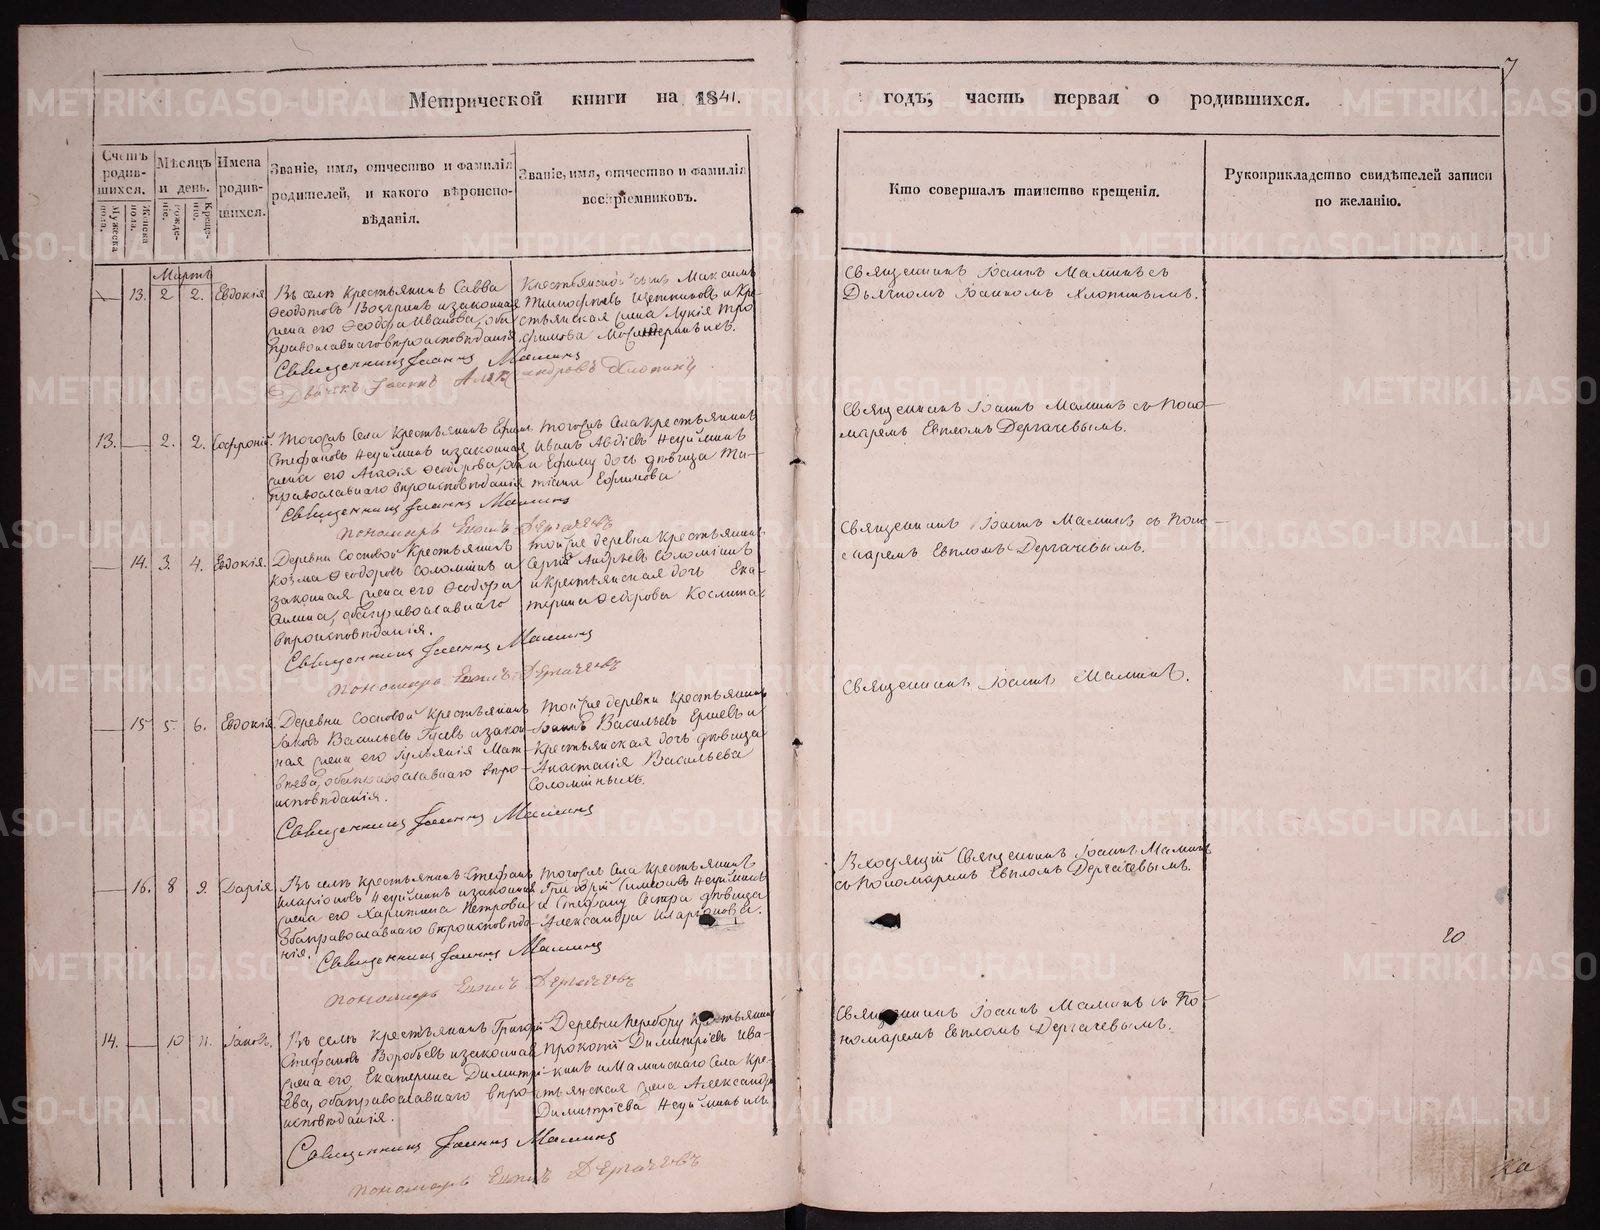 Метрической книги на 1841.
годъ, часть первая о родившихся.
7
Счетъ родив-шихся.
Мужеска пола.
Женска пола.
Мѣсяцъ и день.
рожде-нія.
Креще-нія.
Имена родив-шихся.
Званіе, имя, отчество и фамилія родителей, и какого вѣроиспо-вѣданія.
Званіе, имя, отчество и фамилія воспріемниковъ.
Кто совершалъ таинство крещенія.
Рукоприкладство свидѣтелей записи по желанію.
Мартъ
13. 2 2. Евдокія
Въ селѣ Крестьянинъ Савва
Ѳеодотовъ и законная
жена его Ѳеодора Иванова, оба
православнаго вѣроисповѣданія
Священникъ Іоаннъ Маминъ
Дьячекъ Іоаннъ Александровъ Хлопинъ
Крестьянской сынъ Максимъ
Тимофѣевъ и Кре-
стьянская жена Лукія Тро-
фимова
Священникъ Іоаннъ Маминъ съ
Дьячкомъ Іоанномъ Хлопинымъ.
13. 2. 2. Софроній.
Тогожъ села Крестьянинъ Ефимъ
Стефановъ Неуйминъ и законная
жена его Агафія Ѳеодорова, оба
православнаго вѣроисповѣданія
Священникъ Іоаннъ Маминъ
пономарь Евплъ Дергачевъ
Тогожъ села Крестьянинъ
Иванъ Авдіевъ Неуйминъ
и Ефиму дочь дѣвица Та-
тіана Ефимова
Священникъ Іоаннъ Маминъ съ Поно-
маремъ Евпломъ Дергачевымъ.
14. 3. 4. Евдокія.
Деревни Сосновой Крестьянинъ
Козма Ѳеодоровъ Соломеинъ и
законная жена его Ѳеодора
оба православнаго
вѣроисповѣданія.
Священникъ Іоаннъ Маминъ
пономарь Евплъ Дергачевъ
Тойже деревни Крестьянинъ
Сергій Андреевъ Соломеинъ
и крестьянская дочь Ека-
терина Ѳедорова
Священникъ Іоаннъ Маминъ съ Поно-
маремъ Евпломъ Дергачевымъ.
15 5. 6. Евдокія
Деревни Сосновой Крестьянинъ
Іаковъ Васильевъ Гусевъ и закон-
ная жена его Іуліанія Мат-
вѣева, оба православнаго вѣро-
исповѣданія.
Священникъ Іоаннъ Маминъ
Тойже деревни Крестьянинъ
Іоаннъ Васильевъ Ершевъ и
Крестьянская дочь дѣвица
Анастасія Васильева
Соломеиныхъ.
Священникъ Іоаннъ Маминъ.
16. 8 9. Дарія
Въ селѣ Крестьянинъ Стефанъ
Иларіоновъ Неуйминъ и законная
жена его Харитина Петрова
Оба православнаго вѣроисповѣда-
нія.
Священникъ Іоаннъ Маминъ
пономарь Евплъ Дергачевъ
Тогоже села Крестьянинъ
Григорій Симеоновъ Неуйминъ
и Стефану Сестра дѣвица
Александра Иларіонова.
Входящій Священникъ Іоаннъ Маминъ
съ Пономаремъ Евпломъ Дергачевымъ.
20
14. 10 11. Іаковъ.
Въ селѣ Крестьянинъ Григорій
Стефановъ Воробьевъ и законная
жена его Екатерина Димитрі-
ева, оба православнаго вѣро-
исповѣданія.
Священникъ Іоаннъ Маминъ
пономарь Евплъ Дергачевъ
Деревни Перебору Крестьянинъ
Прокопій Димитріевъ Ива-
кинъ и Маминскаго Села Кре-
стьянская жена Александра
Димитріева Неуйминыхъ
Священникъ Іоаннъ Маминъ съ По-
номаремъ Евпломъ Дергачевымъ.
METRIKI.GASO-URAL.RU